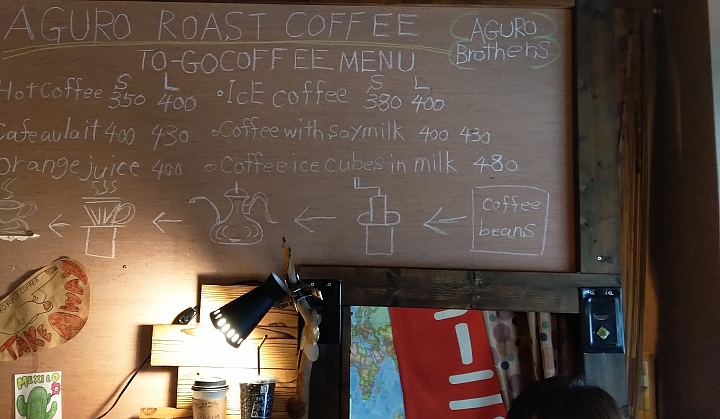 AGURO ROAST COFFEE
AGURO Brothers
TO-GO COFFEE MENU
S L S L
Hot Coffee 350 400 ∘ICE coffee 380 400
Cafe au lait 400 430 ∘Coffee with soymilk 400 430
orange juice 400 ∘Coffee ice cubes in milk 480
coffee
beans
TAKE
MEXICO